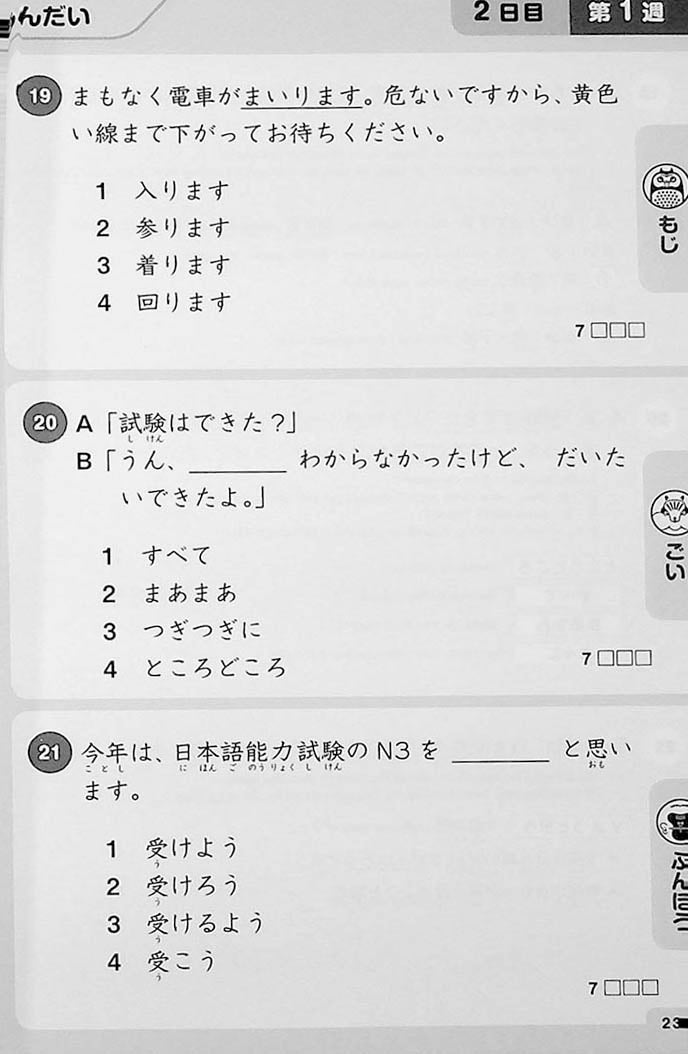 んだい
2日目 第1週
19 まもなく電車がまいります。危ないですから、黄色
い線まで下がってお待ちください。
1 入ります
2 参ります
3 着ります
4 回ります
7 □□□
もじ
20 A「試験はできた？」
し けん
B「うん、_______ わからなかったけど、 だいた
いできたよ。」
1 すべて
2 まあまあ
3 つぎつぎに
4 ところどころ
7 □□□
ごい
21 今年は、日本語能力試験の N3 を _______ と思い
ことし に ほん ご のうりょく し けん おも
ます。
1 受けよう
う
2 受けろう
う
3 受けるよう
う
4 受こう
う
7 □□□
ぶんぽう
23